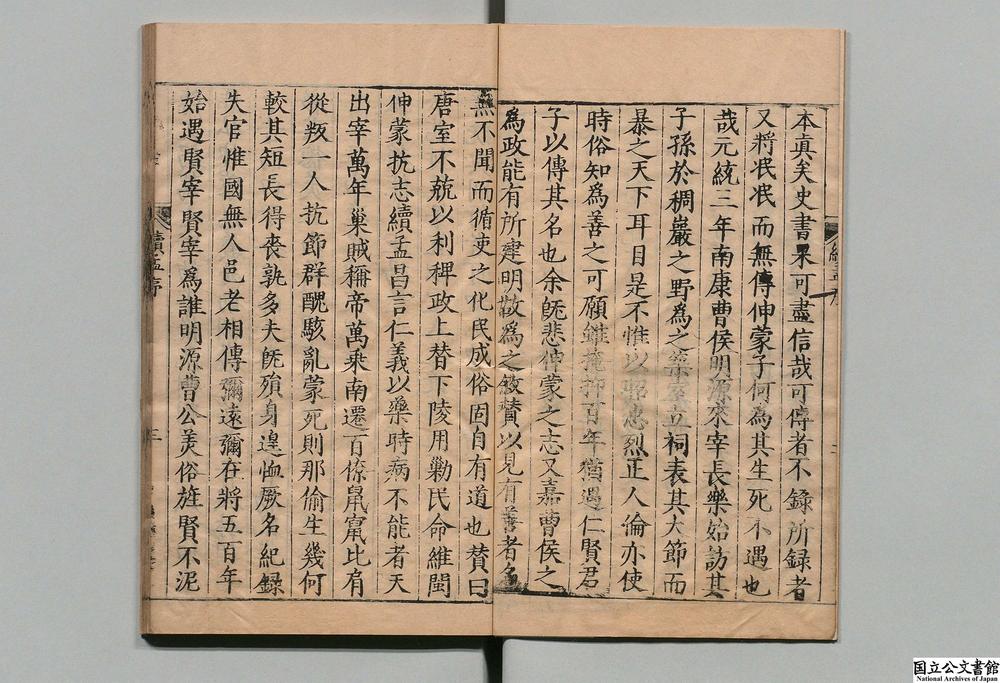 本真矣史書果可盡信哉可傳者不錄所錄者
又將泯泯而無傳伸蒙子何為其生死不遇也
哉元統三年南康曹侯明源來宰長樂始訪其
子孫於稠巖之野為之築室立祠表其大節而
暴之天下耳目是不惟以昭忠烈正人倫亦使
時俗知為善之可願雖掩抑百年猶遇仁賢君
子以傳其名也余旣悲伸蒙之志又嘉曹侯之
為政能有所建明敬為之敘贊以見有善者
無不聞而循吏之化民成俗固自有道也贊曰
唐室不兢以利稗政上替下陵用勦民命維閩
伸蒙抗志續孟昌言仁義以藥時病不能者天
出宰萬年巢賊稱帝萬乘南遷百僚鼠竄比肩
從叛一人抗節群醜駭亂蒙死則那偷生幾何
較其短長得喪孰多夫旣殞身遑恤厥名紀録
失官惟國無人邑老相傳彌遠彌在將五百年
始遇賢宰賢宰為誰明源曹公美俗旌賢不泥
續孟序
三
国立公文書館
National Archives of Japan